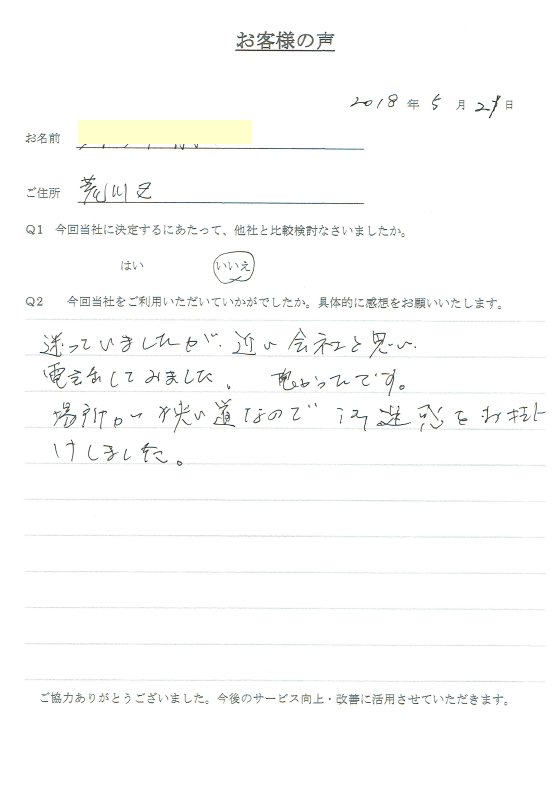 お客様の声
2018年5月21日
お名前
ご住所 荒川区
Q1 今回当社に決定するにあたって、他社と比較検討なさいましたか。
はい いいえ
Q2 今回当社をご利用いただいていかがでしたか。具体的に感想をお願いいたします。
迷っていましたが、近い会社と思い、
電話してみました。 良かったです。
場所が狭い道なので ご迷惑をお掛
けしました。
ご協力ありがとうございました。今後のサービス向上・改善に活用させていただきます。